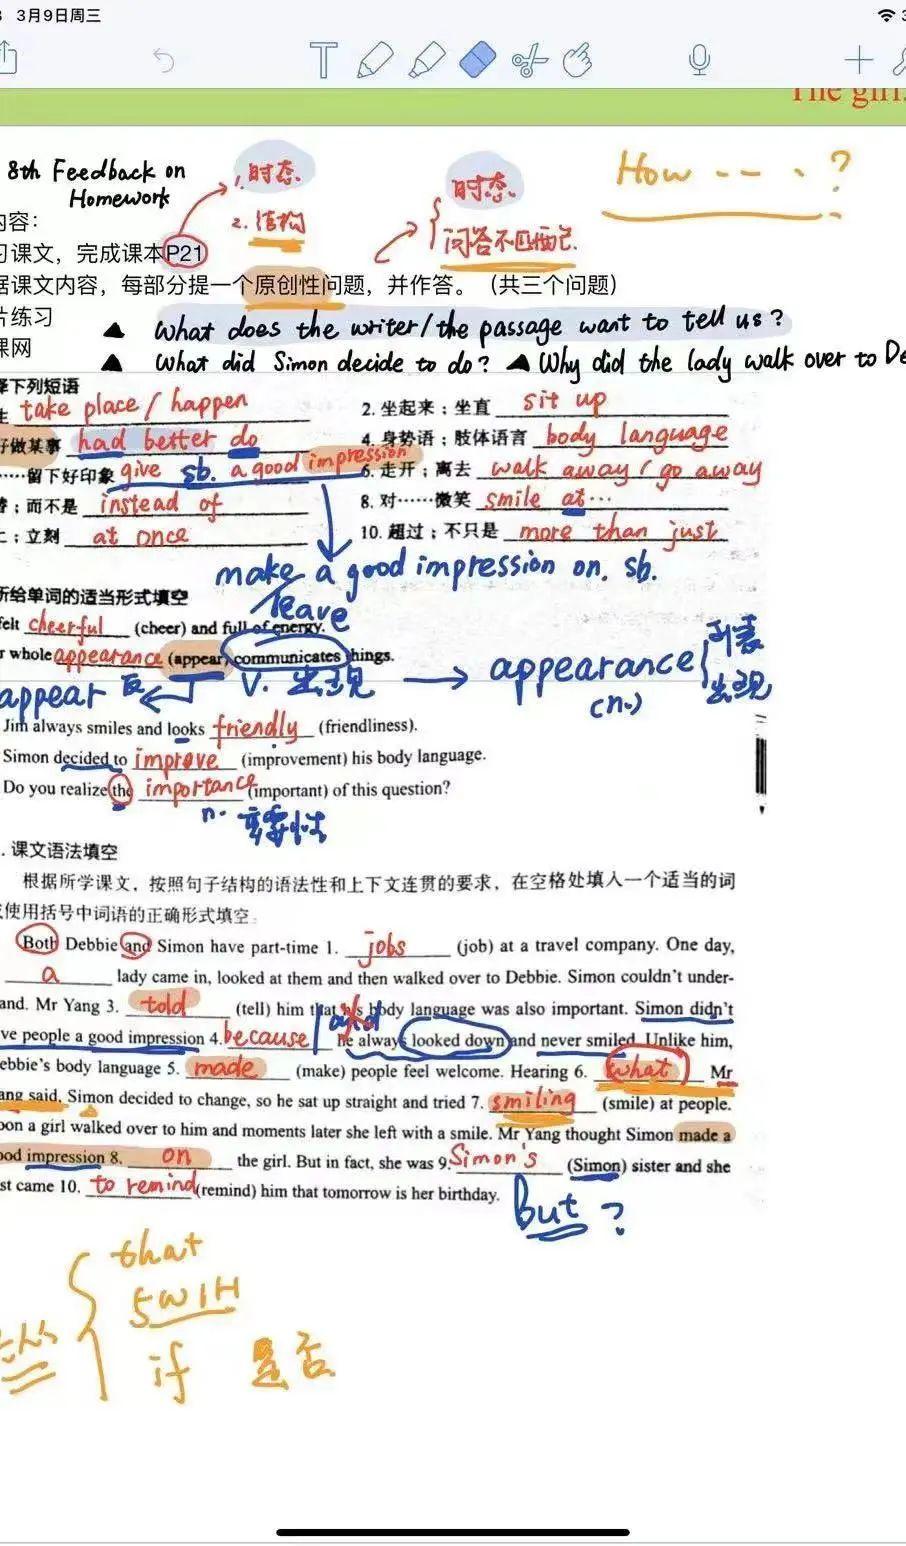 3月9日周三
The girl
How - - - ?
8th Feedback on
Homework
1. 时态.
2. 结构
时态.
问答不匹配.
内容:
习课文，完成课本P21
据课文内容，每部分提一个原创性问题，并作答。（共三个问题）
片练习
课网
▲ What does the writer/the passage want to tell us?
▲ What did Simon decide to do? ▲ Why did the lady walk over to De
择下列短语
生 take place / happen 2. 坐起来；坐直 sit up
好做某事 had better do 4. 身势语；肢体语言 body language
……留下好印象 give sb. a good impression 6. 走开；离去 walk away / go away
替；而不是 instead of 8. 对……微笑 smile at…
；立刻 at once 10. 超过；不只是 more than just
make a good impression on. sb.
leave
所给单词的适当形式填空
felt cheerful (cheer) and full of energy.
r whole appearance (appear) communicates things.
appear 反 v. 出现 → appearance 外表
(n.) 出现
Jim always smiles and looks friendly (friendliness).
Simon decided to improve (improvement) his body language.
Do you realize the importance (important) of this question?
n. 重要性
. 课文语法填空
根据所学课文，按照句子结构的语法性和上下文连贯的要求，在空格处填入一个适当的词
使用括号中词语的正确形式填空。
Both Debbie and Simon have part-time 1. jobs (job) at a travel company. One day,
a lady came in, looked at them and then walked over to Debbie. Simon couldn't under-
and. Mr Yang 3. told (tell) him that his body language was also important. Simon didn't
and
ve people a good impression 4. because he always looked down and never smiled. Unlike him,
ebbie's body language 5. made (make) people feel welcome. Hearing 6. what Mr
ang said, Simon decided to change, so he sat up straight and tried 7. smiling (smile) at people.
oon a girl walked over to him and moments later she left with a smile. Mr Yang thought Simon made a
ood impression 8. on the girl. But in fact, she was 9. Simon's (Simon) sister and she
st came 10. to remind (remind) him that tomorrow is her birthday.
But ?
that
5W1H
if 是否